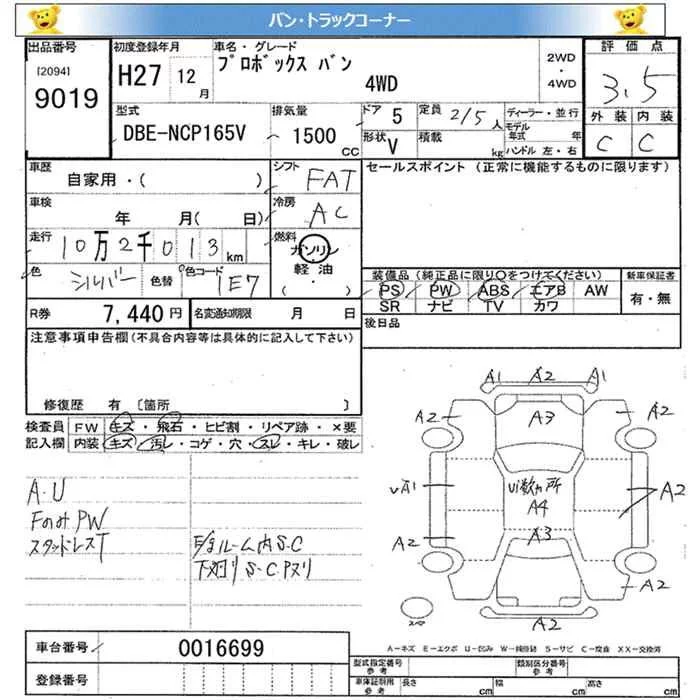 バン・トラックコーナー
出品番号 初度登録年月 車名・グレード 2WD・4WD 評価点
[2094] 9019 H27 12月 プロボックス バン 4WD 3.5
型式 排気量 ドア 5 定員 2/5人 ディーラー・並行 外装 内装
DBE-NCP165V 1500cc 形状 V 積載 kg モデル年式 年 ハンドル 左・右 C C
車歴 自家用・( ) シフト FAT セールスポイント (正常に機能するものに限ります)
車検 年 月( 日) 冷房 AC
走行 10万2千013km 燃料 ガソリン 軽油 (・)
色 シルバー 色替 色コード 1E7
装備品(純正品に限り〇をつけてください) 新車保証書
PS PW ABS エアB AW 有・無
SR ナビ TV カワ
R券 7,440円 名変通知期限 月 日 後日品
注意事項申告欄(不具合内容等は具体的に記入して下さい)
修復歴 有 〔箇所 〕
検査員記入欄 FW キズ・飛石・ヒビ割・リペア跡・×要
内装 キズ・汚レ・コゲ・穴・スレ・キレ・破レ
A.U
FのみPW
スタッドレスT
ルーム内S・C
下回りS・Cヌリ
A1 A2 A1
A2 A3 A2
vA1 A4 A2
A2 A3
A2
A2
スペ
A-キズ E-エクボ U-凹み W-補修跡 S-サビ C-腐食 XX-交換済
車台番号 0016699
登録番号
型式指定番号 参考 類別区分番号 参考
車庫証明用 参考 長さ cm 幅 cm 高さ cm